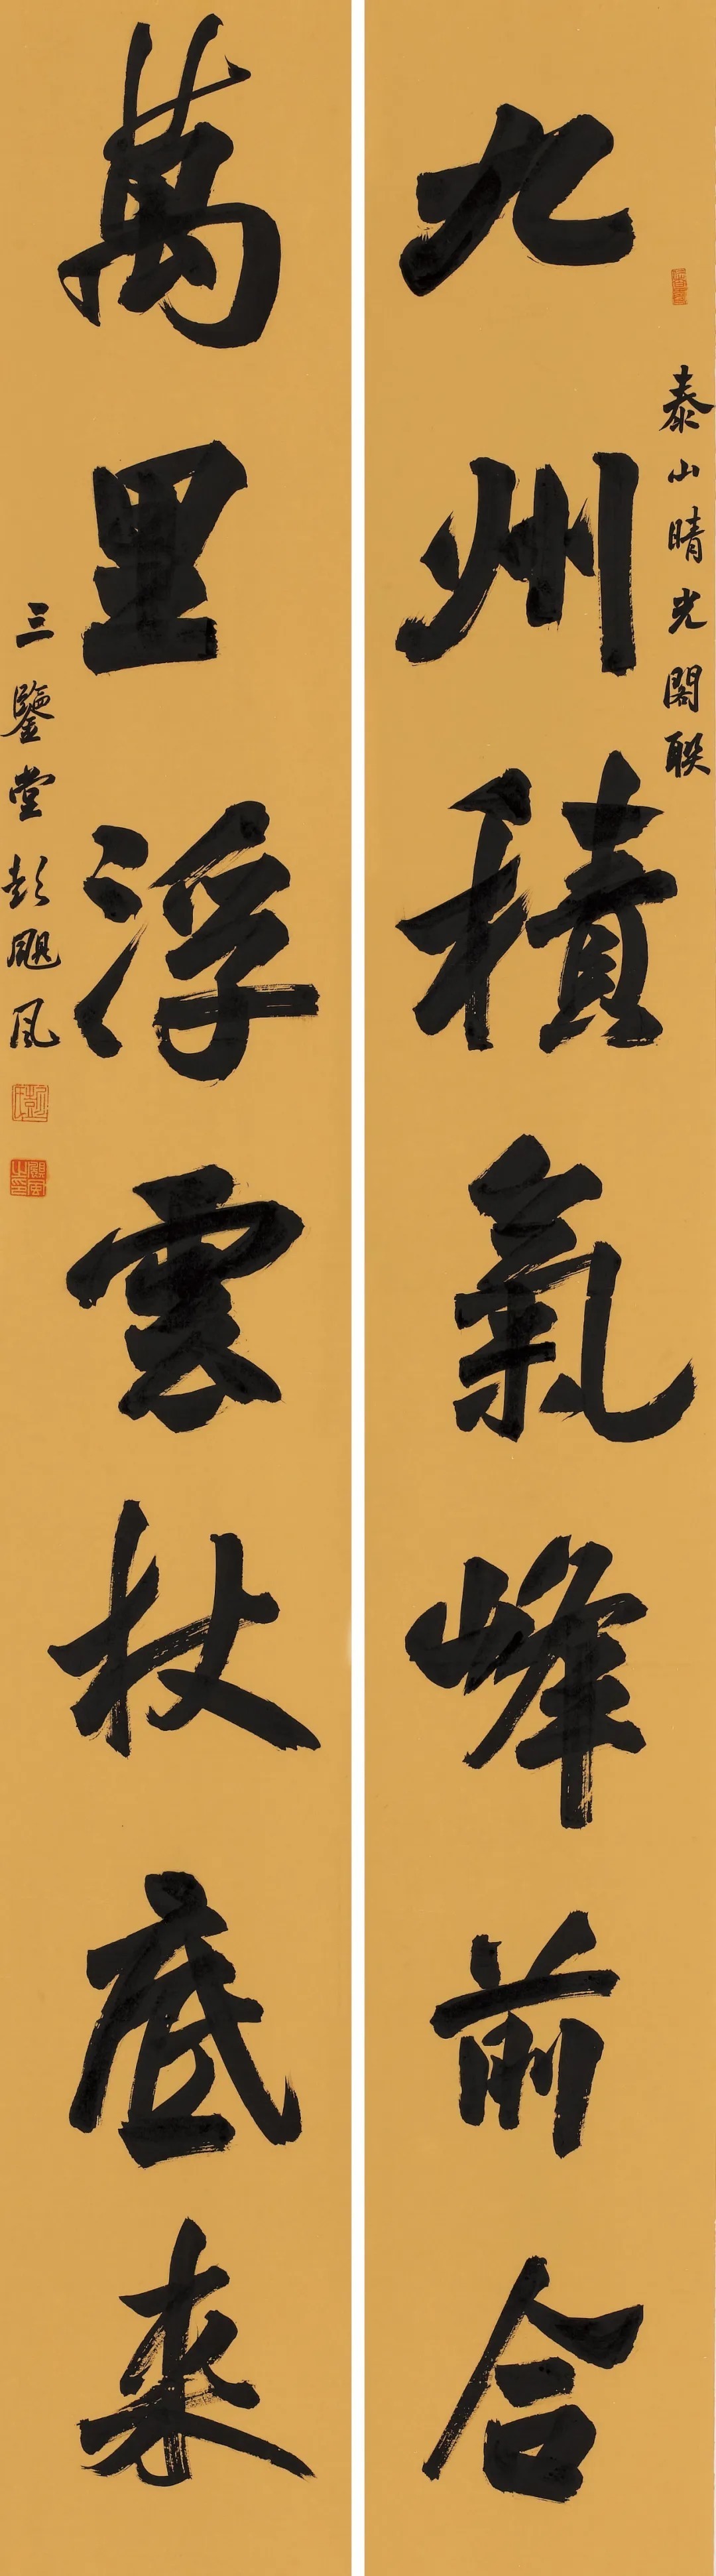 泰山晴光閣联
九州積氣峰前合
萬里浮雲杖底来
三鑒堂彭飓风